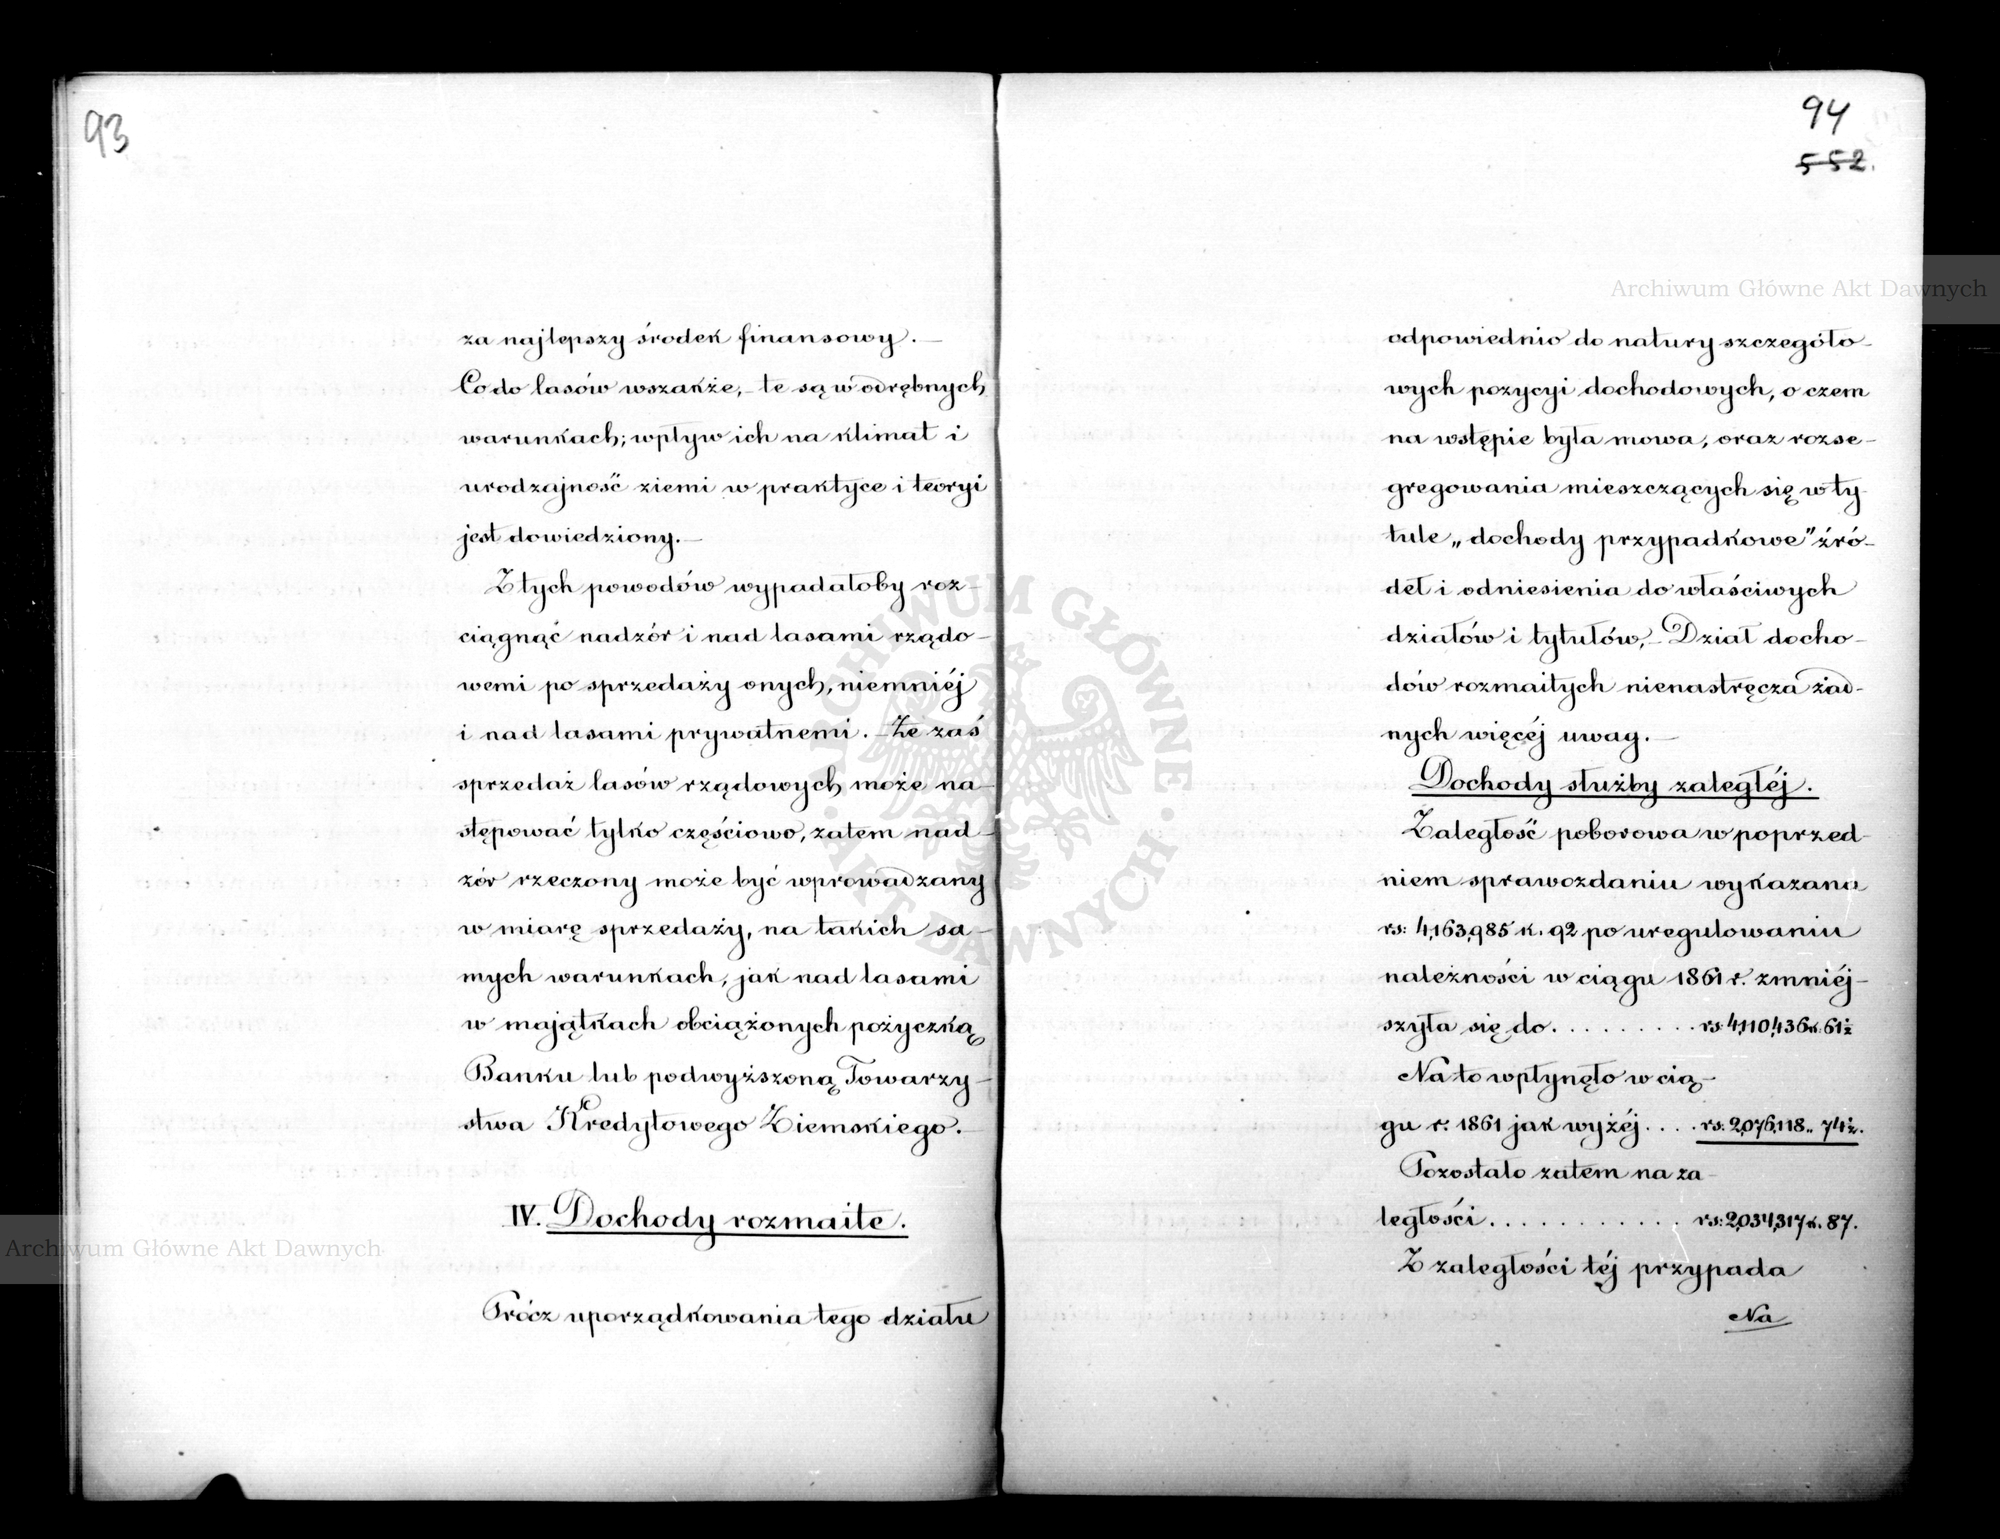 93
za najlepszy środek finansowy. —
Co do lasów wszakże, — te są w odrębnych
warunkach; wpływ ich na klimat i
urodzajność ziemi w praktyce i teoryi
jest dowiedziony. —
Z tych powodów wypadałoby roz-
ciągnąć nadzór i nad lasami rządo-
wemi po sprzedaży onych, niemniéj
i nad lasami prywatnemi. — Że zaś
sprzedaż lasów rządowych może na-
stępować tylko częściowo, zatem nad-
zór rzeczony może być wprowadzany
w miarę sprzedaży, na takich sa-
mych warunkach, jak nad lasami
w majątkach obciążonych pożyczką
Banku lub podwyższoną Towarzy-
stwa Kredytowego Ziemskiego. —
IV. Dochody rozmaite.
Prócz uporządkowania tego działu
94
552.
odpowiednio do natury szczegóło-
wych pozycyi dochodowych, o czem
na wstępie była mowa, oraz rozse-
gregowania mieszczących się w ty-
tule „dochody przypadkowe" źró-
deł i odniesienia do właściwych
działów i tytułów, — Dział docho-
dów rozmaitych nienastręcza żad-
nych więcéj uwag. —
Dochody służby zaległéj.
Zaległość poborowa w poprzed-
niem sprawozdaniu wykazana
rs: 4,163,985 k. 92 po uregulowaniu
należności w ciągu 1861 r. zmniéj-
szyła się do . . . . . . . . . rs: 4,110,436 k: 61½
Na to wpłynęło w cią-
gu r. 1861 jak wyżéj . . . . rs: 2,076,118 „ 74½.
Pozostało zatem na za-
ległości . . . . . . . . . . . . rs: 2,034,317 k. 87.
Z zaległości téj przypada
Na
Archiwum Główne Akt Dawnych
Archiwum Główne Akt Dawnych
ARCHIWUM GŁÓWNE · AKT DAWNYCH ·